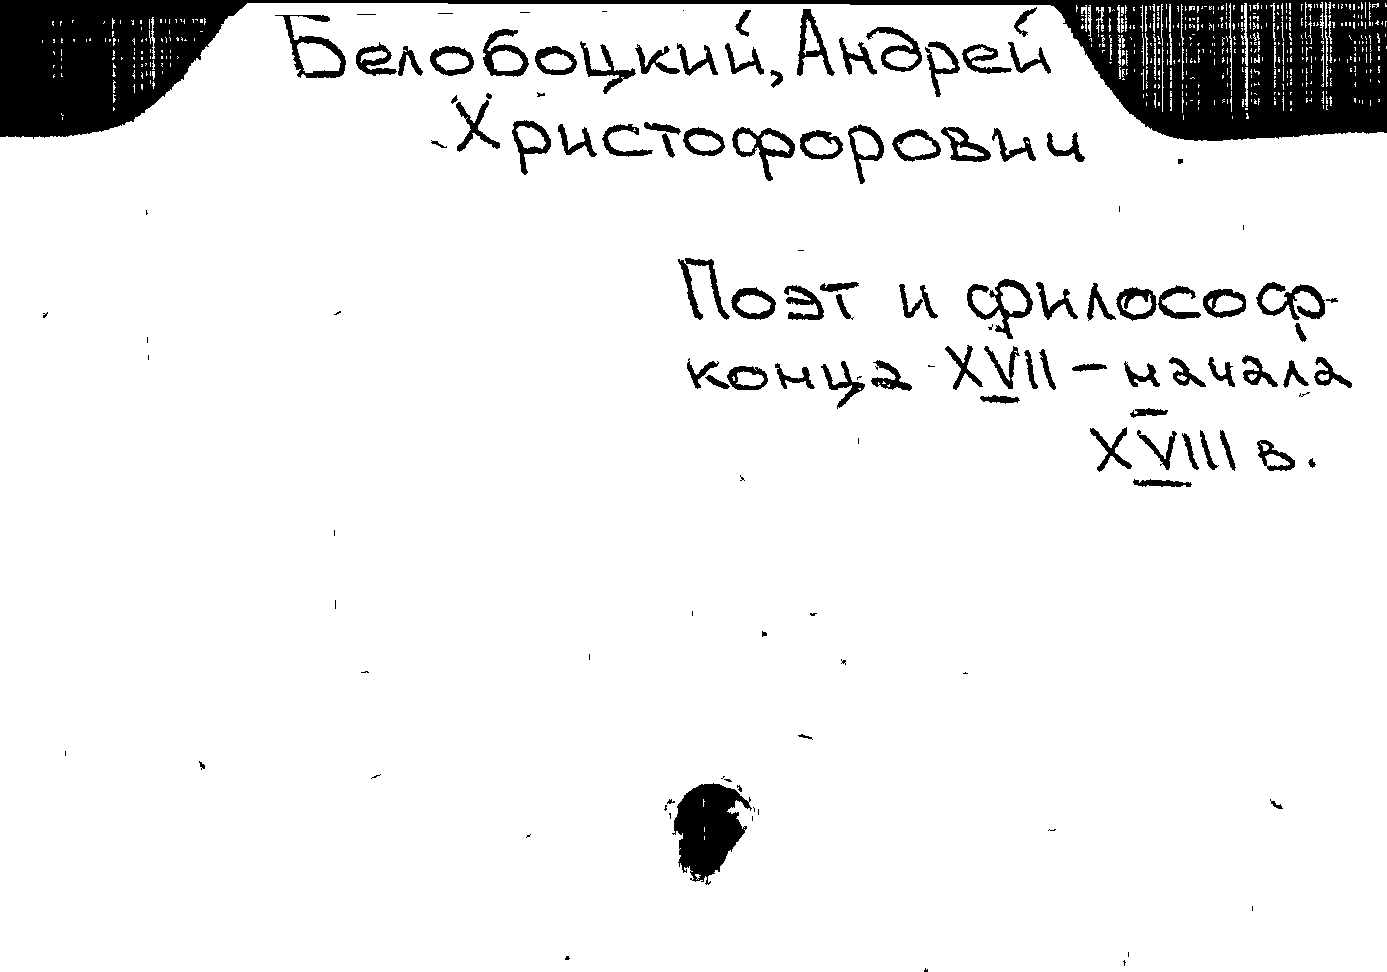 Белобоцкий, Андрей
Христофорович
Поэт и философ
конца XVII – начала
XVIII в.